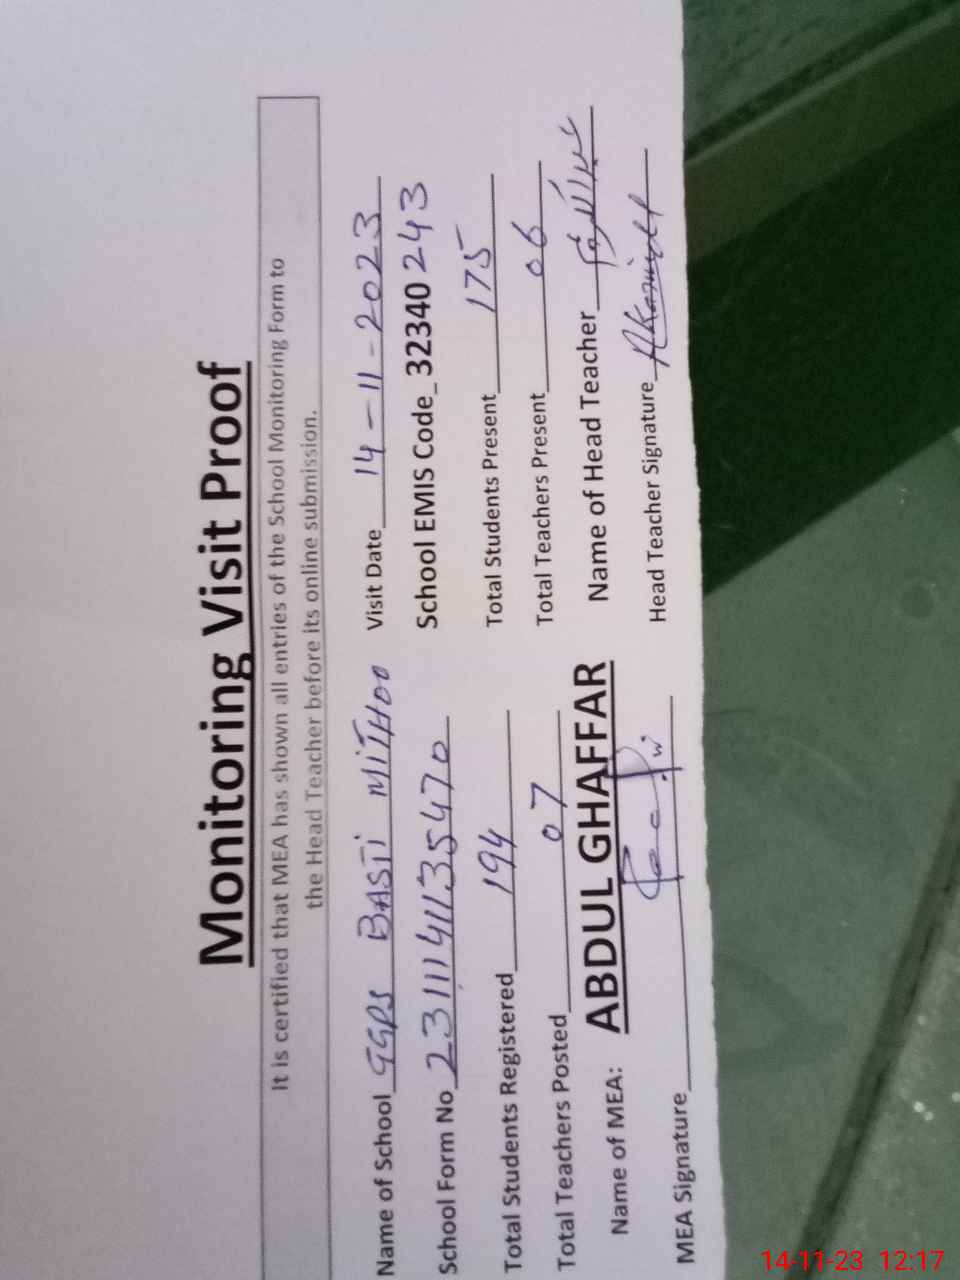 Monitoring Visit Proof
It is certified that MEA has shown all entries of the School Monitoring Form to
the Head Teacher before its online submission.
Name of School GGPS BASTI MITHOO Visit Date 14-11-2023
School Form No 2311141135470 School EMIS Code_ 32340 243
Total Students Registered 194 Total Students Present 175
Total Teachers Posted 07 Total Teachers Present 06
Name of MEA: ABDUL GHAFFAR Name of Head Teacher
MEA Signature Head Teacher Signature
14-11-23 12:17